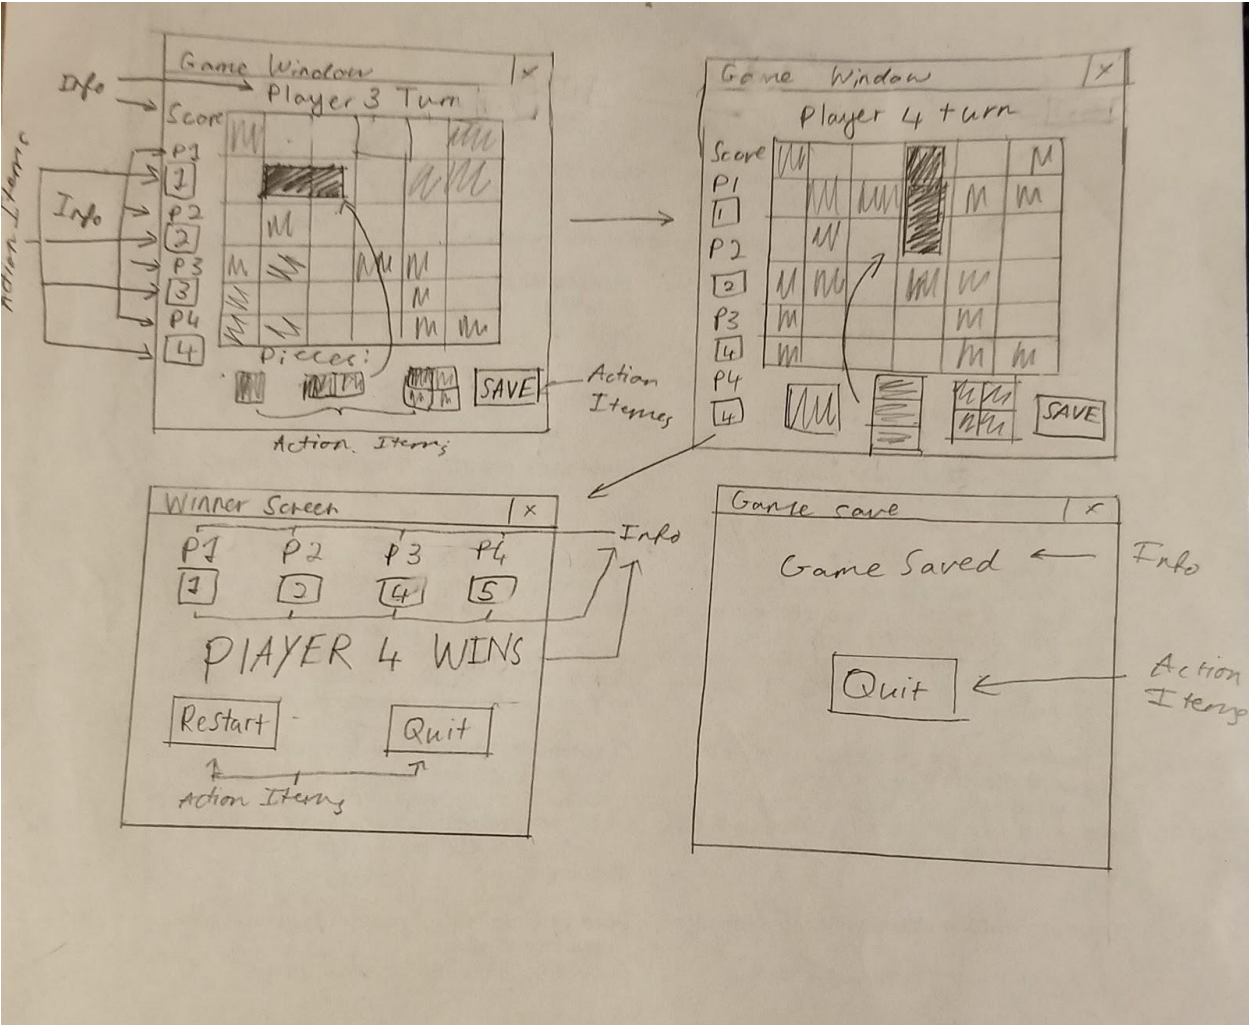 Game Window
x
Info
Player 3 Turn
Score
P1
1
Info
P2
2
P3
3
P4
4
Action Items
Pieces:
SAVE
Action
Itemes
Action Items
Game Window
x
Player 4 turn
Score
P1
1
P2
2
P3
4
P4
4
SAVE
Winner Screen
x
Info
P1
P2
P3
P4
1
2
4
5
PLAYER 4 WINS
Restart
Quit
Action Items
Game save
x
Game Saved
Info
Quit
Action
Items